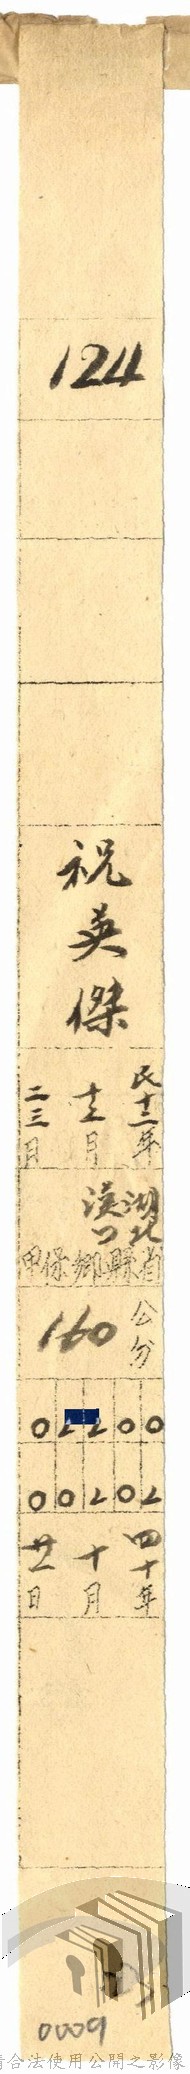 124
祝英傑
民十三年
十二月
二三日
湖北省
漢口縣
鄉保甲
公分
160
0 2 2 0 0
0 0 2 0 2
四十年
十月
廿一日
0009
請合法使用公開之影像